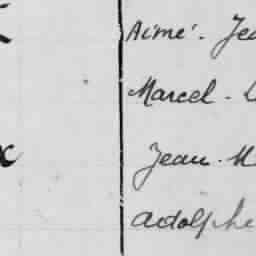 Aimé. Jea
Marcel. L
x Jean. M
Adolphe